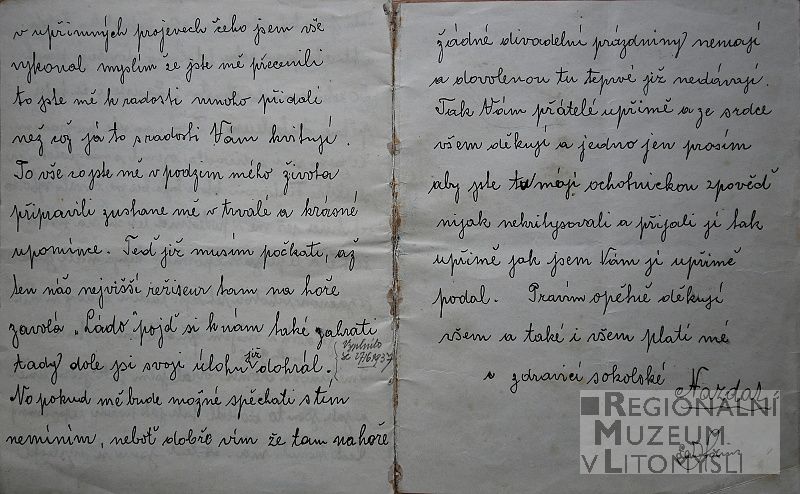 v upřimných projevech čeho jsem vše
vykonal myslim že jste mě přecenili
to jste mě k radosti mnoho přidali
než což já to s radosti Vám kvituji.
To vše co jste mě v podzim mého života
připravili zustane mě v trvalé a krásné
upomince. Teď již musím počkati, až
ten náš nejvišší režiseur tam na hoře
zavolá „Ládo" pojď si k nám také zahrati
tady dole jsi svoji úlohu již dohrál.
Vyplnilo
se 27/6 1937
No pokud mě bude možné spěchati s tím
nemíním, neboť dobře vím že tam nahoře
žádné divadelní prázdniny nemají
a dovolenou tu teprvé již nedávají.
Tak Vám přátelé upřimě a ze srdce
všem děkuji a jedno jen prosím
aby jste tu moji ochotnickou zpověď
nijak nekritysovali a přijali ji tak
upřimě jak jsem Vám ji upřimě
podal. Pravím opětně děkuji
všem a také i všem platí mé
v zdravici sokolské Nazdar
REGIONÁLNÍ
MUZEUM
V LITOMYŠLI